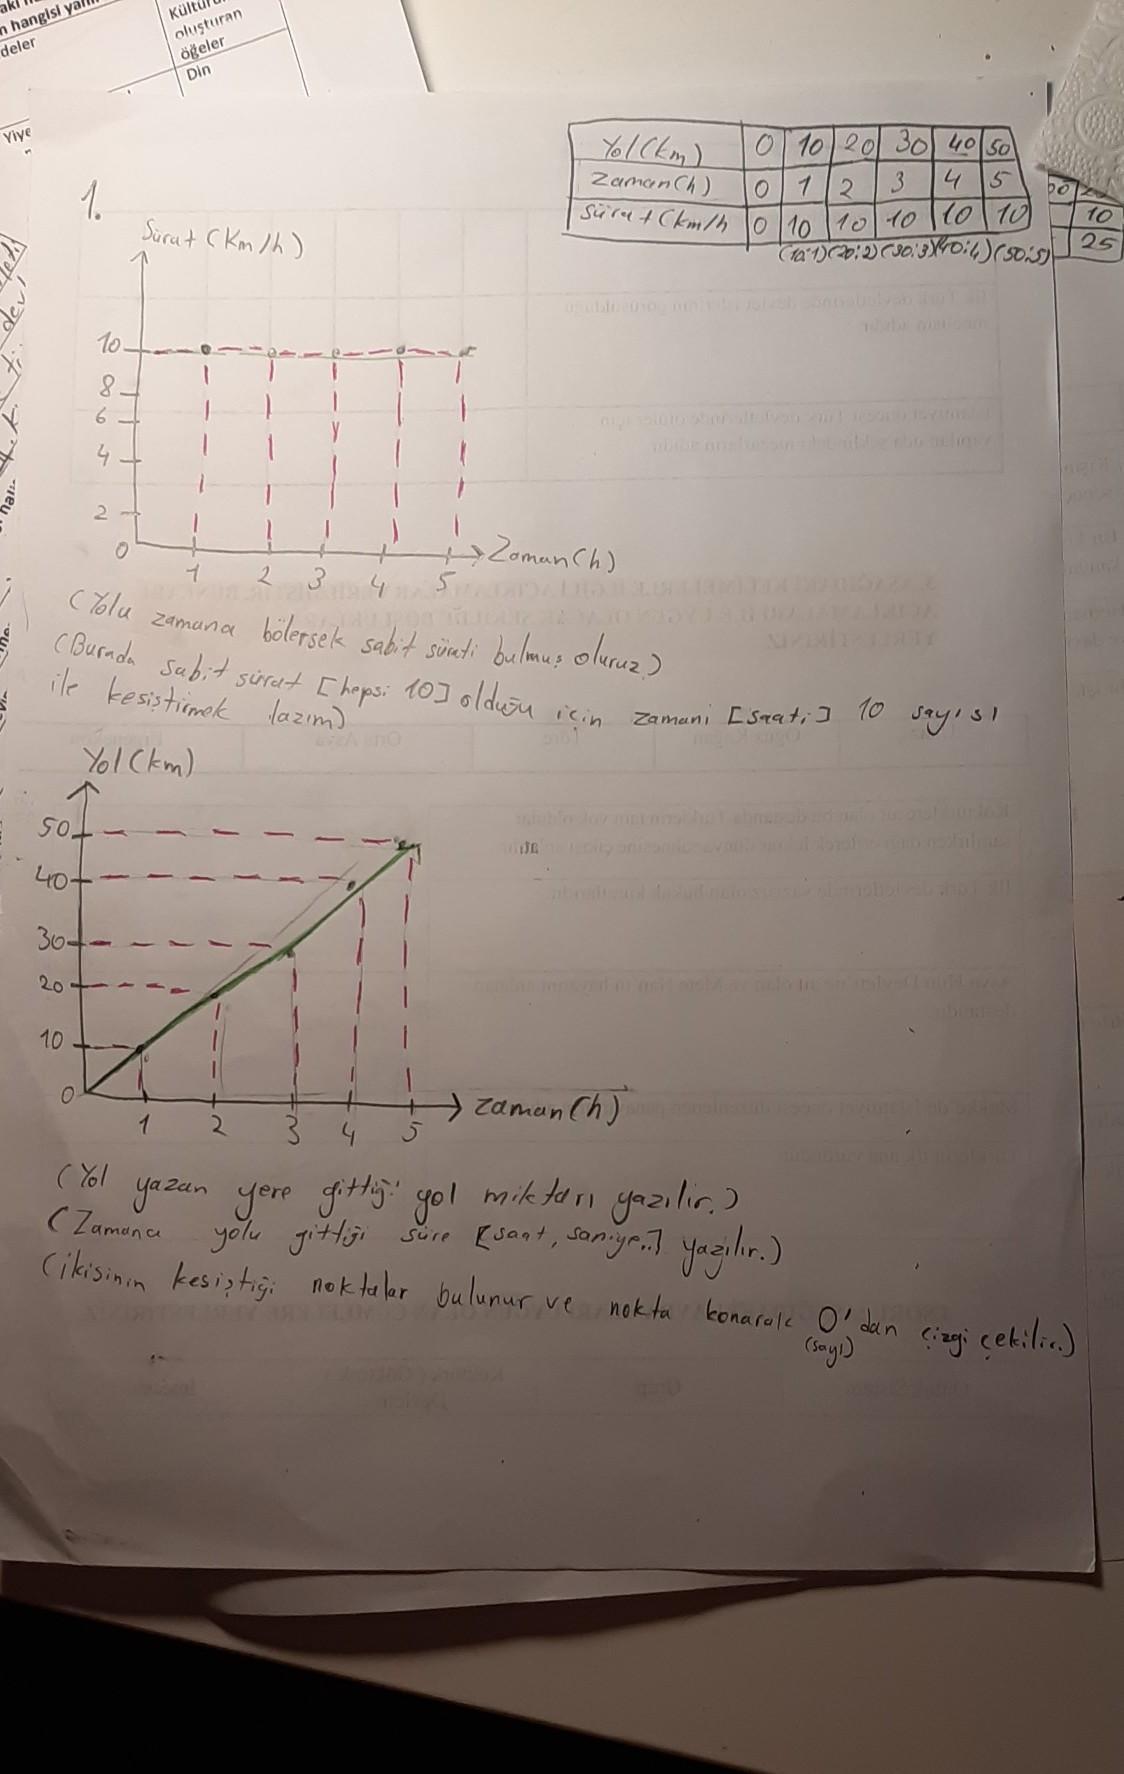 n hangisi
deler
oluşturan
öğeler
Din
Yol (km) 0 10 20 30 40 50
Zaman (h) 0 1 2 3 4 5
Sürat (km/h 0 10 10 10 10 10
(10:1) (20:2) (30:3) (40:4) (50:5)
10
25
1.
Sürat (Km/h)
10
8
6
4
2
0
1 2 3 4 5 Zaman (h)
(Yolu zamana bölersek sabit sürati bulmuş oluruz)
(Burada sabit sürat [hepsi 10] olduğu için zamani [saati] 10 sayısı
ile kesiştirmek lazım)
Yol (km)
50
40
30
20
10
0
1 2 3 4 5 zaman (h)
(Yol yazan yere gittiği yol miktarı yazılır.)
(Zamana yolu gittiği süre [saat, saniye..] yazılır.)
(ikisinin kesiştiği noktalar bulunur ve nokta konarak 0'dan çizgi çekilir.)
(sayı)